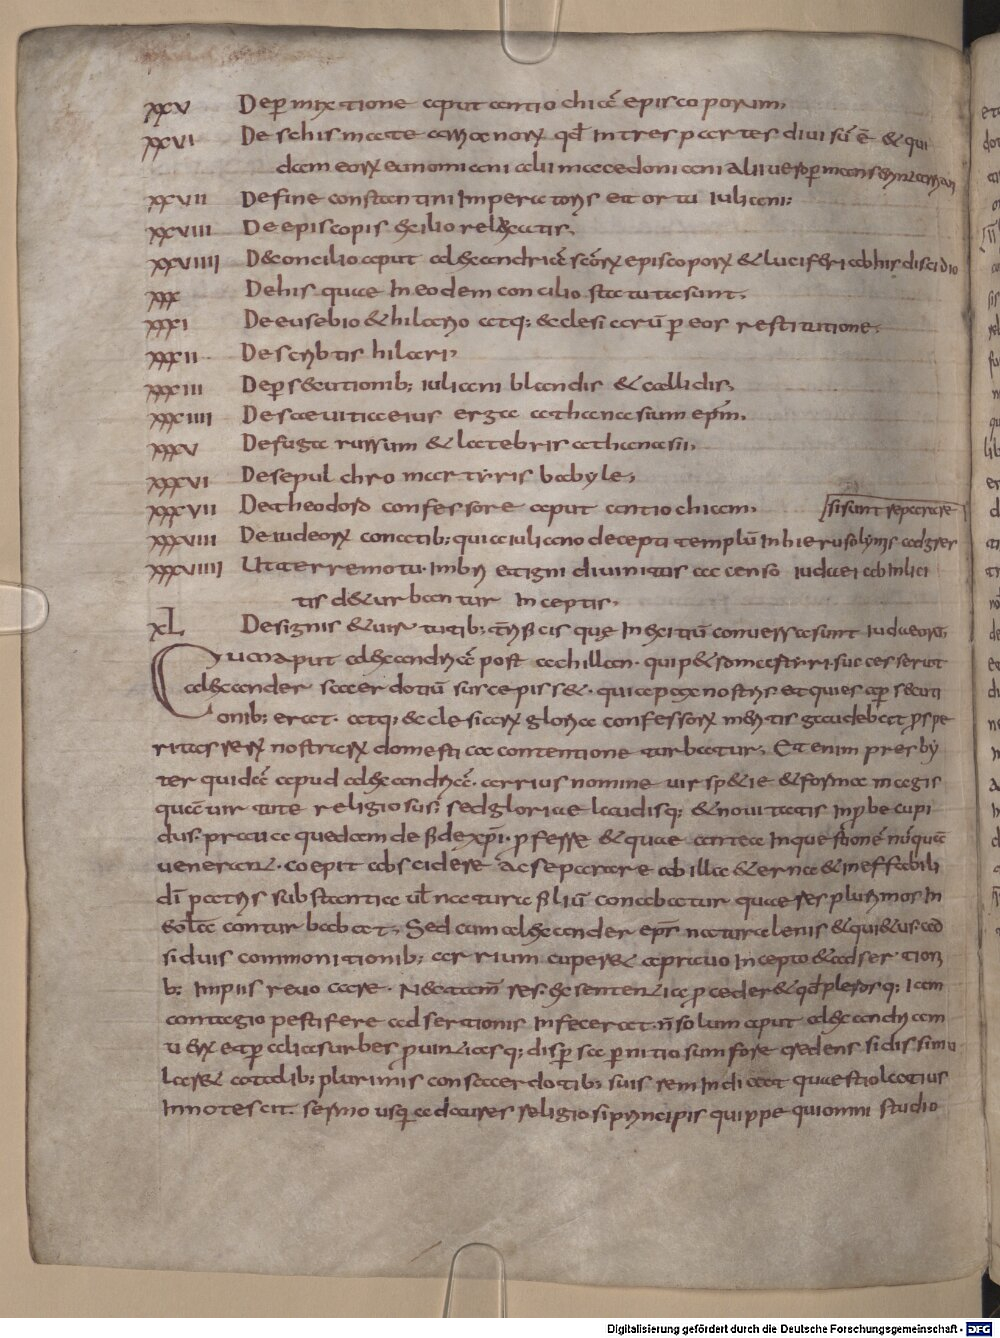 XXV De permixtione aput antiochiā episcoporum;
XXVI De schismate arrianorꝝ qd̄ In tres partes diuisū ē & qui
dam eorꝝ eunomiani alii macedoniani alii uero permanserunt arriani
XXVII De fine constantini Imperatoris et ortu Iuliani;
XXVIII De episcopis exilio relaxatis;
XXVIIII De concilio aput alexandriā scōrꝝ episcoporꝝ & luciferi ab his discidio
XXX De his quae In eodem concilio statuta sunt;
XXXI De eusebio & hilario atq; ecclesiarū per eos restitutione;
XXXII De scribtis hilari;
XXXIII De persecutionib; iuliani blandis & callidis;
XXXIIII De saeuitia eius erga athanasium epm̄;
XXXV De fuga rursum & latebris athanasii;
XXXVI De sepulchro martyris babyle;
XXXVII De theodoro confessore aput antiochiam; si sunt reparare
XXXVIII De iudeorꝝ conatib; qui a iuliano decepti templū In hierusolymis adgres
XXXVIIII Ut terremotu Imbri et igni diuinitus accenso iudaei ab Inlici
tis deturbantur Inceptis;
XL De signis & uirtutib; terribilis que In exitiū conuersa sunt iudaeorū;
Cum aput alexandriā post achillan · qui petro martyri successerat
alexander sacerdotiū suscepisset · quia pax nostris et quies a persecuti
onib; erat · atq; ecclesiarꝝ gloria confessorꝝ meritis gaudebat prospe
ritas rerꝝ nostrarꝝ domestica contentione turbatur; Etenim presby
ter quidā apud alexandriā · arrius nomine uir specie & forma magis
quā uirtute religiosus · sed gloriae laudisq; & nouitatis Inprobe cupi
dus · praua quedam de fide xp̄i · proferre & quae antea In questionē nūquā
uenerant · coepit abscidere ac separare ab illa eterna & ineffabili
dī patris substantia ul̄ natura filiū conabatur quae res plurimos In
ecclesia conturbabat; Sed cum alexander epīs natura lenis & quietus ad
siduis commonitionib; arrium cuperet a prauo Incepto & adsertionī
b; Impiis reuocare · nec tam̄ res ex sententia procederet qd̄ plerosq; iam
contagio pestifere adsertionis Infecerat · n̄ solum aput alexandriam
uerū et per alias urbes prouintiasq; dispersa pernitiosum fore credens si dissimu
laret ad talib; plurimis consacerdotib; suis rem Indicat quaestio latius
Innotescit · sermo usq; ad aures religiosi principis quippe qui omni studio